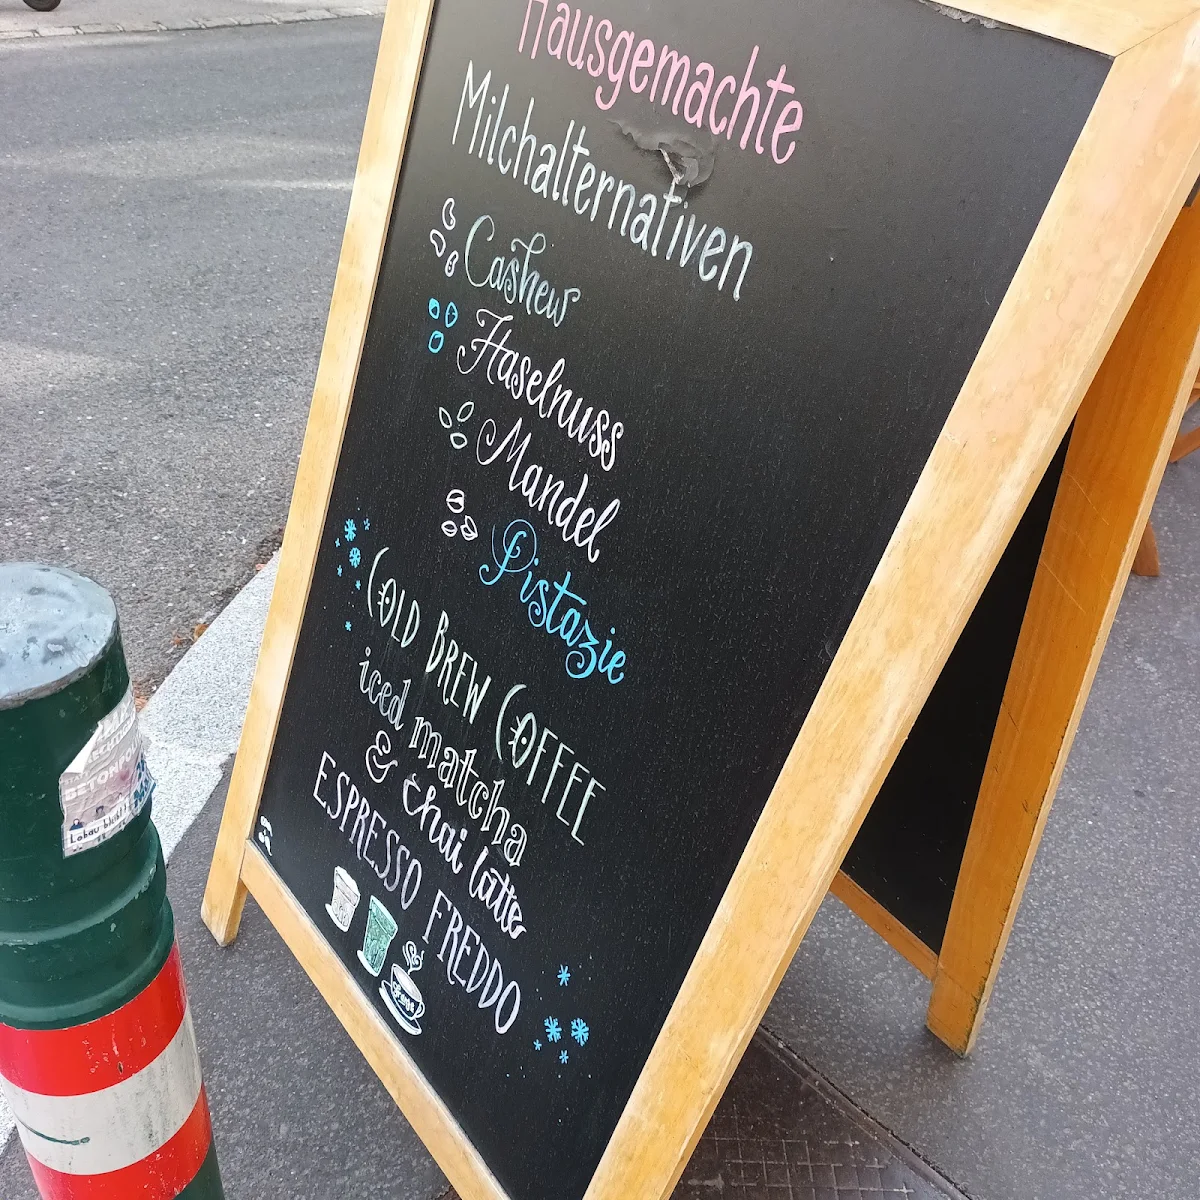 Hausgemachte
Milchalternativen
Cashew
Haselnuss
Mandel
Pistazie
COLD BREW COFFEE
iced matcha
& chai latte
ESPRESSO FREDDO
BETONPOLI
Lobau bleibt!